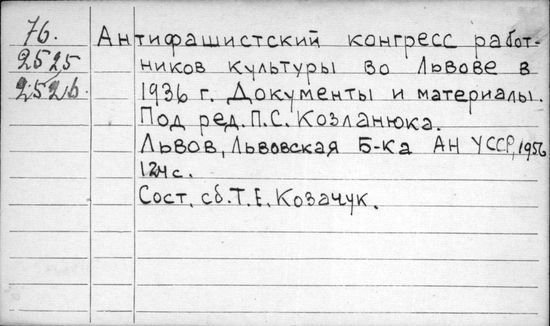 76.
2525
2526.
Антифашистский конгресс работ-
ников культуры во Львове в
1936 г. Документы и материалы.
Под ред. П.С. Козланюка.
Львов, Львовская Б-ка АН УССР, 1956
124 с.
Сост. сб. Т.Е. Козачук.